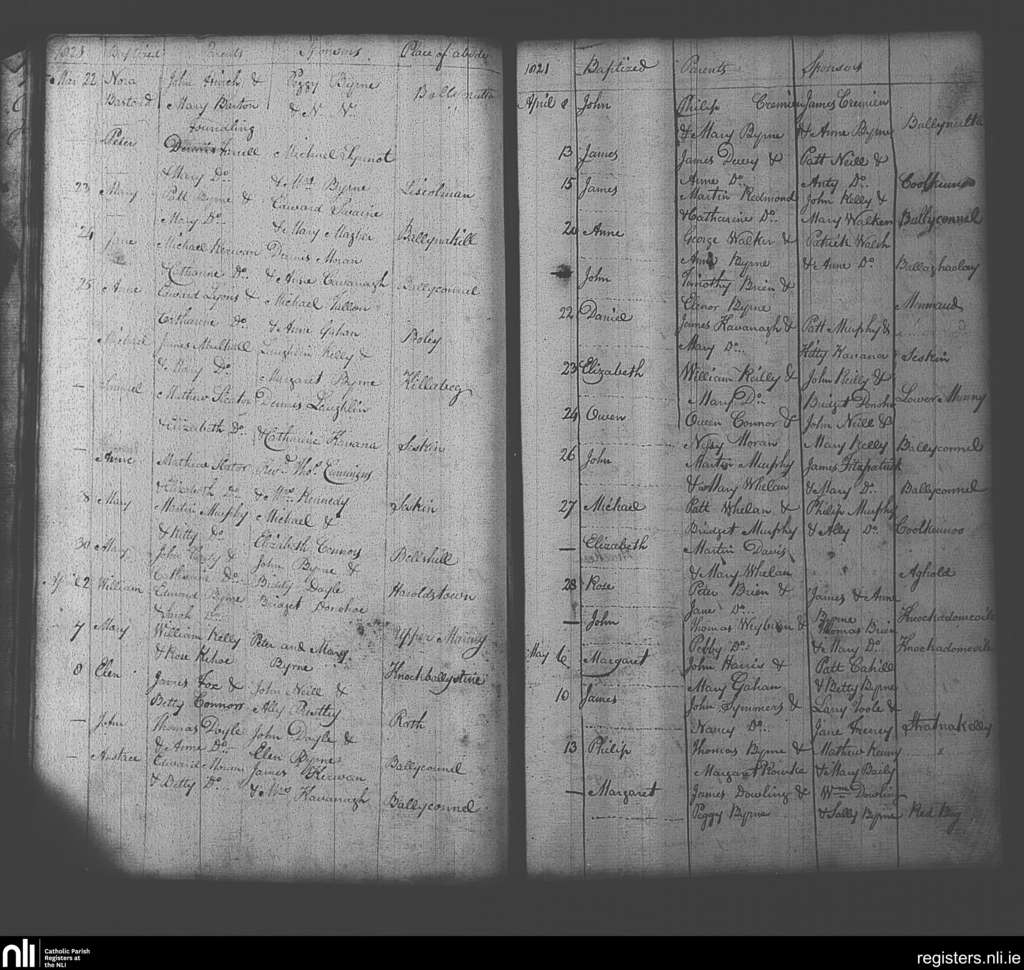 1821 Baptized Parents Sponsors Place of abode
Mar 22 Nora John Hinch & Peggy Byrne
Bastard Mary Barton & N. N.
Foundling
Peter Michael Synnot
& Mary Do. & Wm Byrne Liscolman
23 Mary Patt Byrne & Edward Swaine
Mary Do. & Mary Ballynakill
24 Jane Michael Kerwan Dennis Moran
Catharine Do. & Anne Cavanagh Ballyconnel
25 Anne Edward Lyons & Michael Fallon
Catharine Do. & Anne Gahan Boley
Michael James Mulhall Laughlin Kelly &
& Mary Do. Margaret Byrne Killabeg
— Samuel Mathew Slator Dennis Laughlin
& Elizabeth Do. & Catharine Kavana Seskin
— Anne Mathew Slator Revd. Thos.
& Elizabeth Do. & Wm Kennedy Seskin
8 Mary Martin Murphy Michael &
& Kitty Do. Elizabeth Connors
30 Mary John & John Byrne &
Catharine Do. Biddy Doyle Haroldstown
April 2 William Edward Byrne Bridget Donohoe
& Sarah Do. Upper Money
7 Mary William Kelly Peter and Mary
& Rose Kehoe Byrne Knockballystine
8 Elen James Fox & John Neill &
Betty Connors Ally Roth
— John Thomas Doyle John Doyle &
& Anne Do. Elen Byrne Ballyconnel
— Anstace Edward James Kerwan
& Betty Do. & Wm Kavanagh Ballyconnel
1821 Baptized Parents Sponsors
April 8 John Philip Cremien James Cremien
& Mary Byrne & Anne Byrne
13 James James & Patt Neill &
Anne Do. Anty Do. Coolkennoo
15 James Martin Redmond John Kelly &
& Catharine Do. Mary Walker Ballyconnel
20 Anne George Walker & Patrick Walsh
Ann Byrne & Anne Do.
— John Timothy Brien &
Elenor Byrne
22 Daniel James Kavanagh & Patt Murphy &
Mary Do. Kitty Kavana Seskin
23 Elizabeth William Reilly & John Reilly &
Mary Do. Bridget Donoho Lower Munny
24 Owen Owen Connor & John Neill &
Nesy Moran Mary Kelly Ballyconnel
26 John Martin Murphy James Fitzpatrick
& Mary Whelan & Mary Do. Ballyconnel
27 Michael Patt Whelan & Philip Murphy
Bridget Murphy & Ally Do. Coolkennoo
— Elizabeth Martin Davis
& Mary Whelan Aghold
28 Rose Peter Brien & James & Anne
Jane Do. Byrne
— John Thomas & Thomas Brien
Pebby Do. & Mary Do.
May 6 Margaret John Harris & Patt Cahill
Mary Gahan & Betty Byrne
10 James John Symmers & Larry Toole &
Nancy Do. Jane Stratnakelly
13 Philip Thomas Byrne & Mathew Kenny
Margaret Rourke & Mary Baily
— Margaret James Dowling & Wm Dowling
Peggy Byrne & Sally Byrne Red Bog
nli
Catholic Parish
Registers at
the NLI
registers.nli.ie